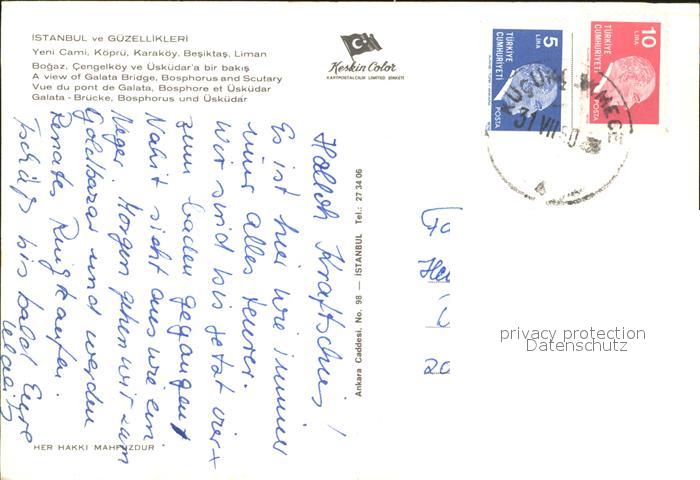 İSTANBUL ve GÜZELLİKLERİ
Yeni Cami, Köprü, Karaköy, Beşiktaş, Liman
Boğaz, Çengelköy ve Üsküdar'a bir bakış
A view of Galata Bridge, Bosphorus and Scutary
Vue du pont de Galata, Bosphore et Üsküdar
Galata - Brücke, Bosphorus und Üsküdar
Keskin Color
KARTPOSTALCILIK LIMITED ŞİRKETİ
5
LIRA
TÜRKİYE
CUMHURİYETİ
POSTA
10
LIRA
TÜRKİYE
CUMHURİYETİ
POSTA
31 VII 80
Halloh Kraftschis!
Es ist hier wie immer
nur alles teurer.
Wir sind bis jetzt vier x
zum baden gegangen
Nahit sieht aus wie ein
Neger. Morgen gehen wir zum
Goldbazar und werden
Renates Ring kaufen.
Tschüß bis bald Eure
Ankara Caddesi, No. 98 — İSTANBUL Tel.: 27 34 06
20
HER HAKKI MAHFUZDUR
privacy protection
Datenschutz